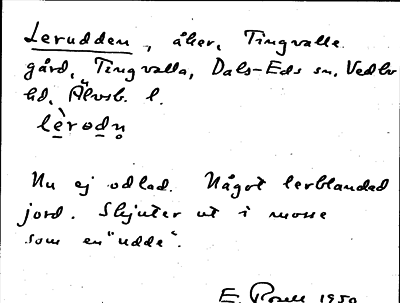 Lerudden, åker, Tingvalla
gård, Tingvalla, Dals-Eds sn, Vedbo
hd, Älvsb. l.
lèrodn̥
Nu ej odlad. Något lerblandad
jord. Skjuter ut i mosse
som en "udde".
E. 1950